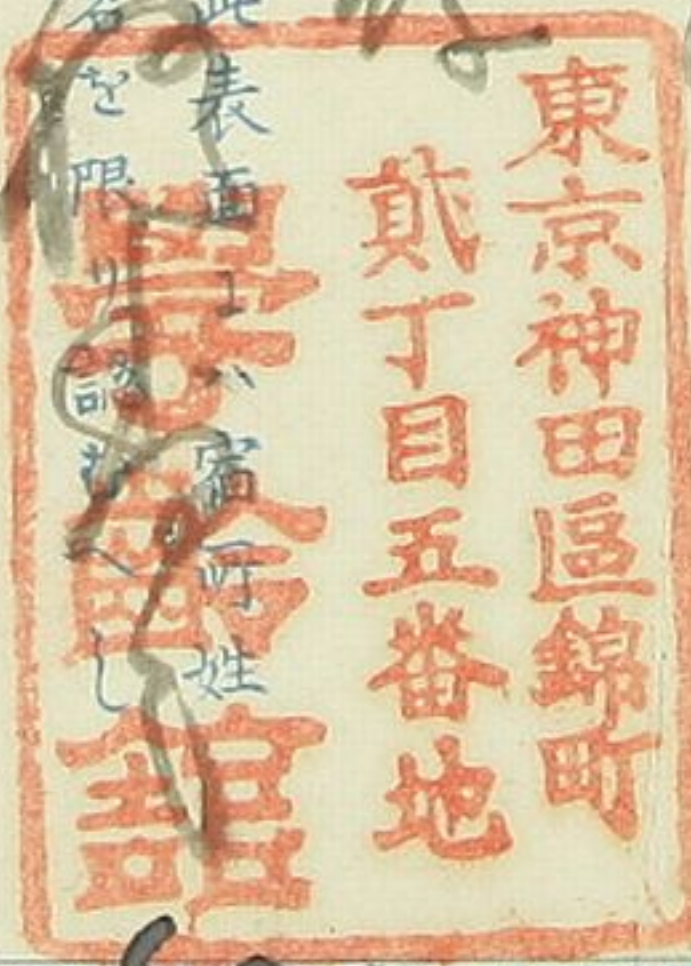 東京神田區錦町
貮丁目五番地
舘
此表面ニハ宿所姓
名を限り認むへし